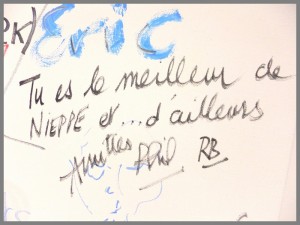 PK) Eric
Tu es le meilleur de
NIEPPE et ... d'ailleurs
Amitiés Phil RB